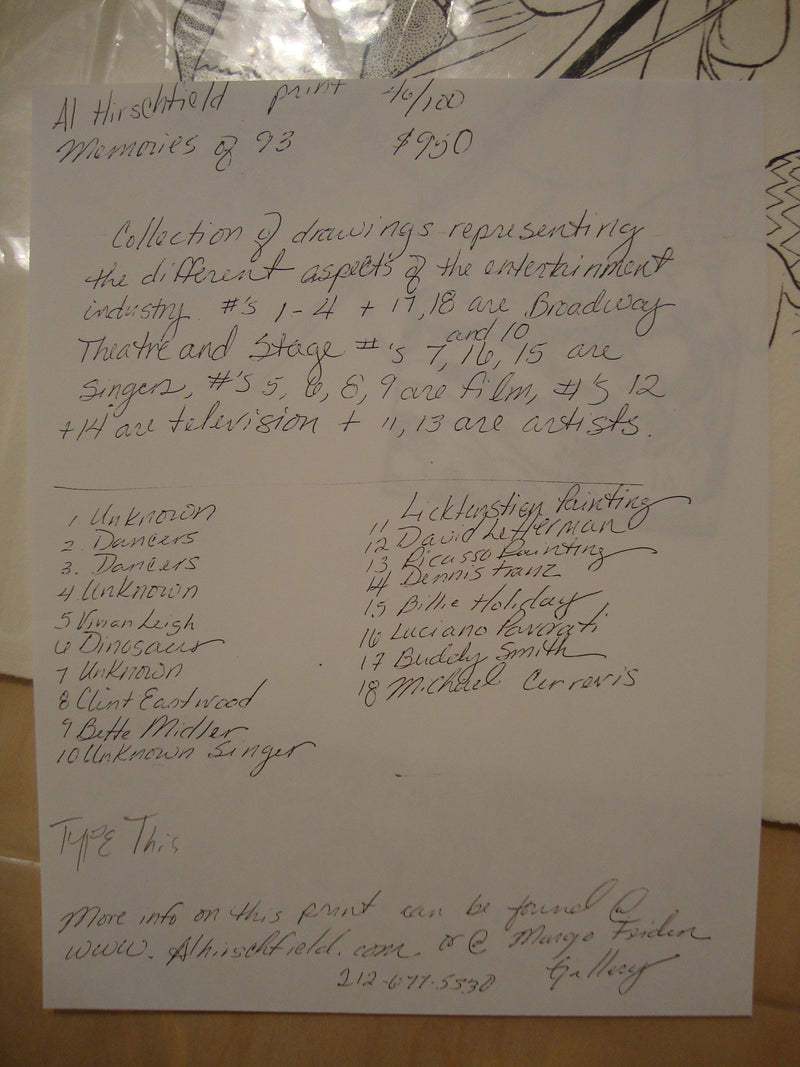 Al Hirschfield print 46/100
Memories of 93 $950
Collection of drawings representing
the different aspects of the entertainment
industry. #'s 1-4 + 17,18 are Broadway
Theatre and Stage #'s 7, 16, 15 and 10 are
singers, #'s 5, 6, 8, 9 are film, #'s 12
+14 are television + 11, 13 are artists.
1 Unknown
2. Dancers
3. Dancers
4 Unknown
5 Vivian Leigh
6 Dinosaur
7 Unknown
8 Clint Eastwood
9 Bette Midler
10 Unknown Singer
11 Licktenstien Painting
12 David Letterman
13 Picasso Painting
14 Dennis Franz
15 Billie Holiday
16 Luciano Pavorati
17 Buddy Smith
18 Michael Cerveris
Type This
More info on this print can be found @
www.Alhirschfield.com. or @ Margo Feiden
Gallery
212-677-5330